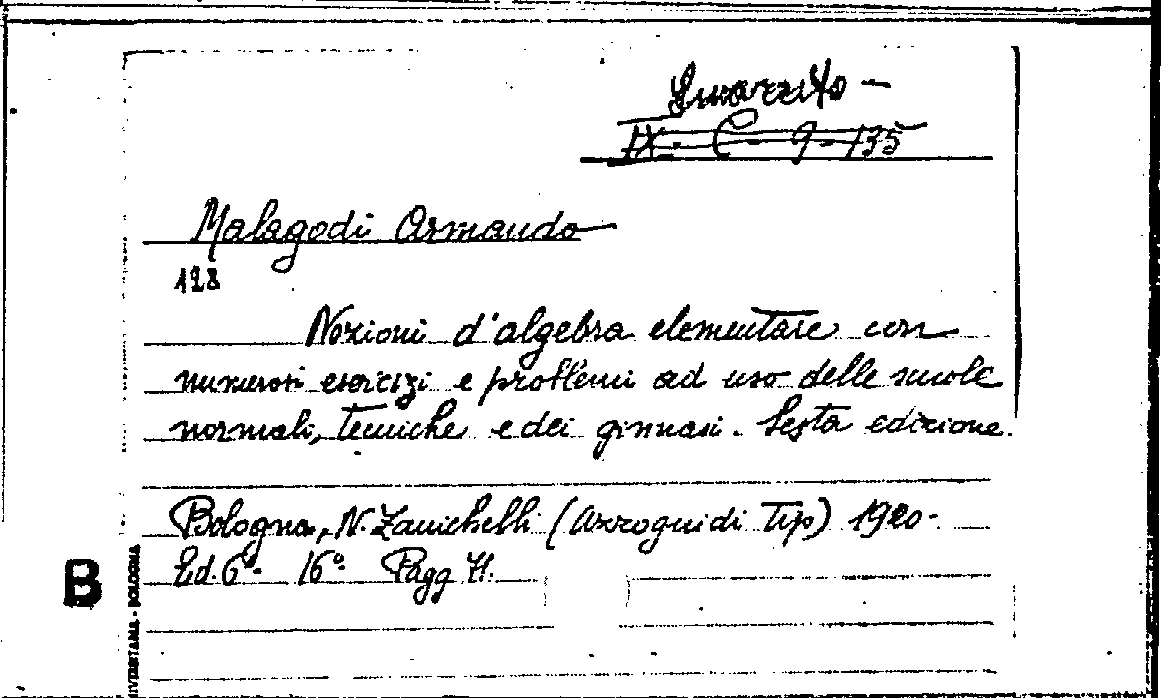 Smarrito -
IX. C - 9 - 135
Malagodi Armando
128
Nozioni d'algebra elementare con
numerosi esercizi e problemi ad uso delle scuole
normali, tecniche e dei ginnasi. Sesta edizione.
Bologna, N. Zanichelli (Azzoguidi Tip) 1920-
Ed. 6ª- 16°. Pagg 71.
B
UNIVERSITARIA - BOLOGNA